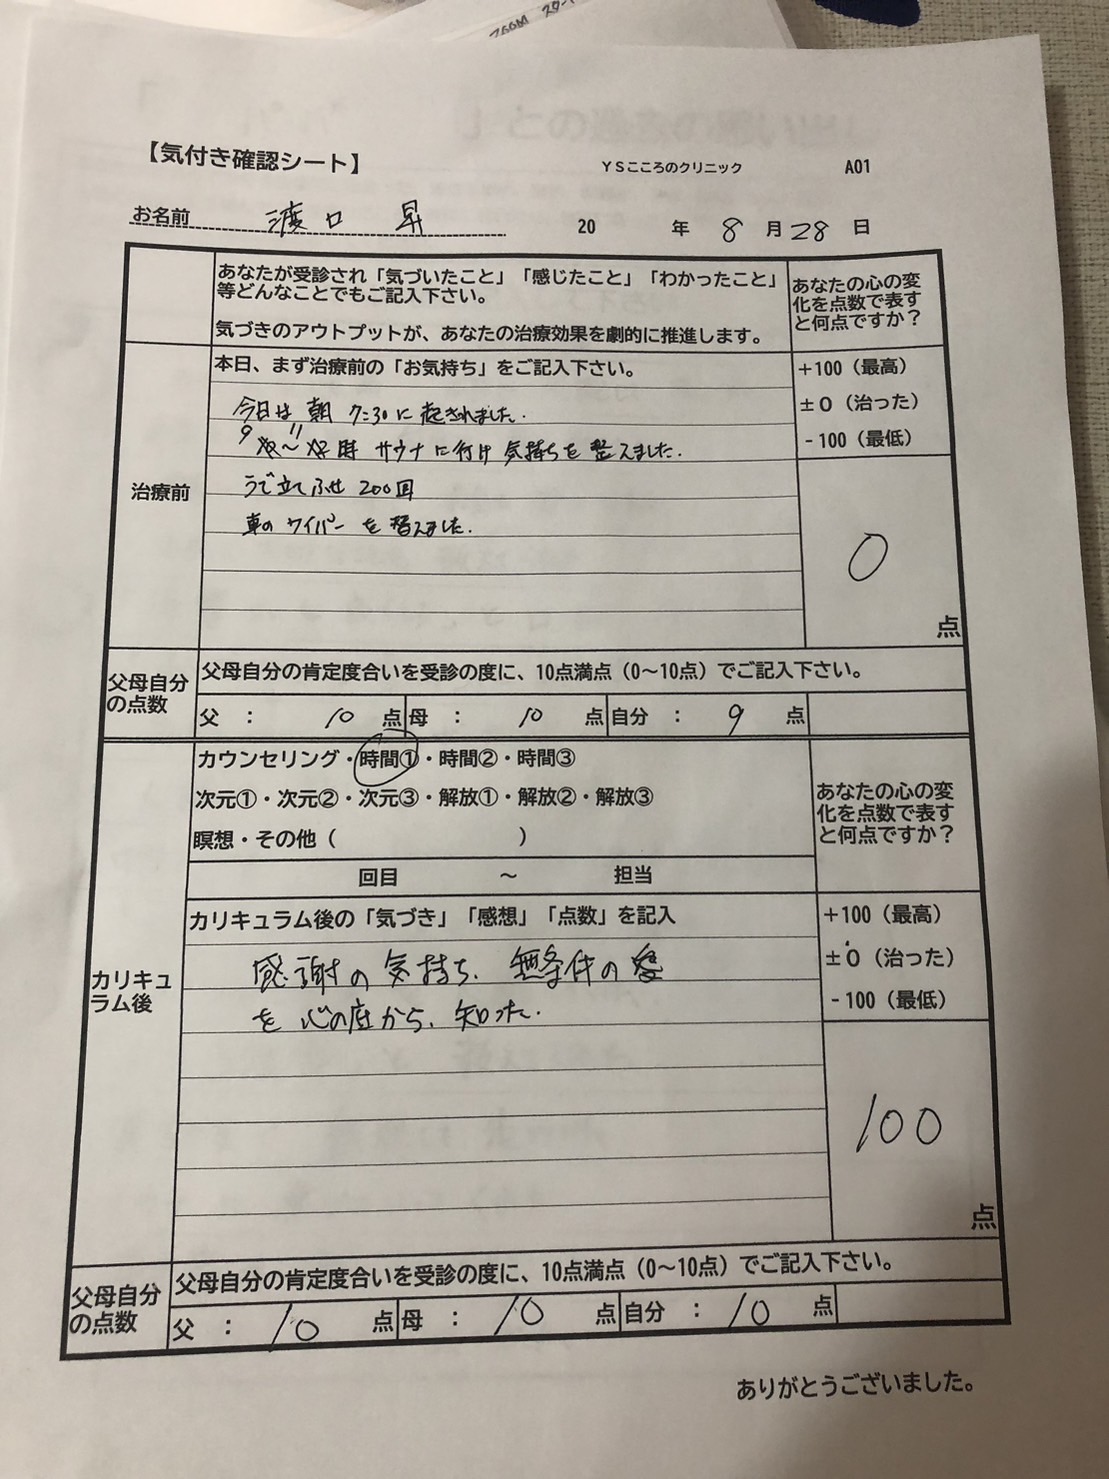 ZOOM スター
【気付き確認シート】 YSこころのクリニック A01
お名前 渡口 昇 20 年 8 月 28 日
あなたが受診され「気づいたこと」「感じたこと」「わかったこと」
等どんなことでもご記入下さい。
気づきのアウトプットが、あなたの治療効果を劇的に推進します。
あなたの心の変
化を点数で表す
と何点ですか？
治療前
本日、まず治療前の「お気持ち」をご記入下さい。
今日は 朝 7:30に起されました.
9 〜 11 時 サウナに行け 気持ちを 整えました.
うで立てふせ 200回
車の ワイパー を 替えました.
+100（最高）
±0（治った）
-100（最低）
0
点
父母自分
の点数
父母自分の肯定度合いを受診の度に、10点満点（0〜10点）でご記入下さい。
父 ： 10 点 母 ： 10 点 自分 ： 9 点
カリキュ
ラム後
カウンセリング・時間①・時間②・時間③
次元①・次元②・次元③・解放①・解放②・解放③
瞑想・その他（ ）
回目 〜 担当
あなたの心の変
化を点数で表す
と何点ですか？
カリキュラム後の「気づき」「感想」「点数」を記入
感謝の 気持ち、無条件の愛
を 心の底から、知った.
+100（最高）
±0（治った）
-100（最低）
100
点
父母自分
の点数
父母自分の肯定度合いを受診の度に、10点満点（0〜10点）でご記入下さい。
父 ： 10 点 母 ： 10 点 自分 ： 10 点
ありがとうございました。